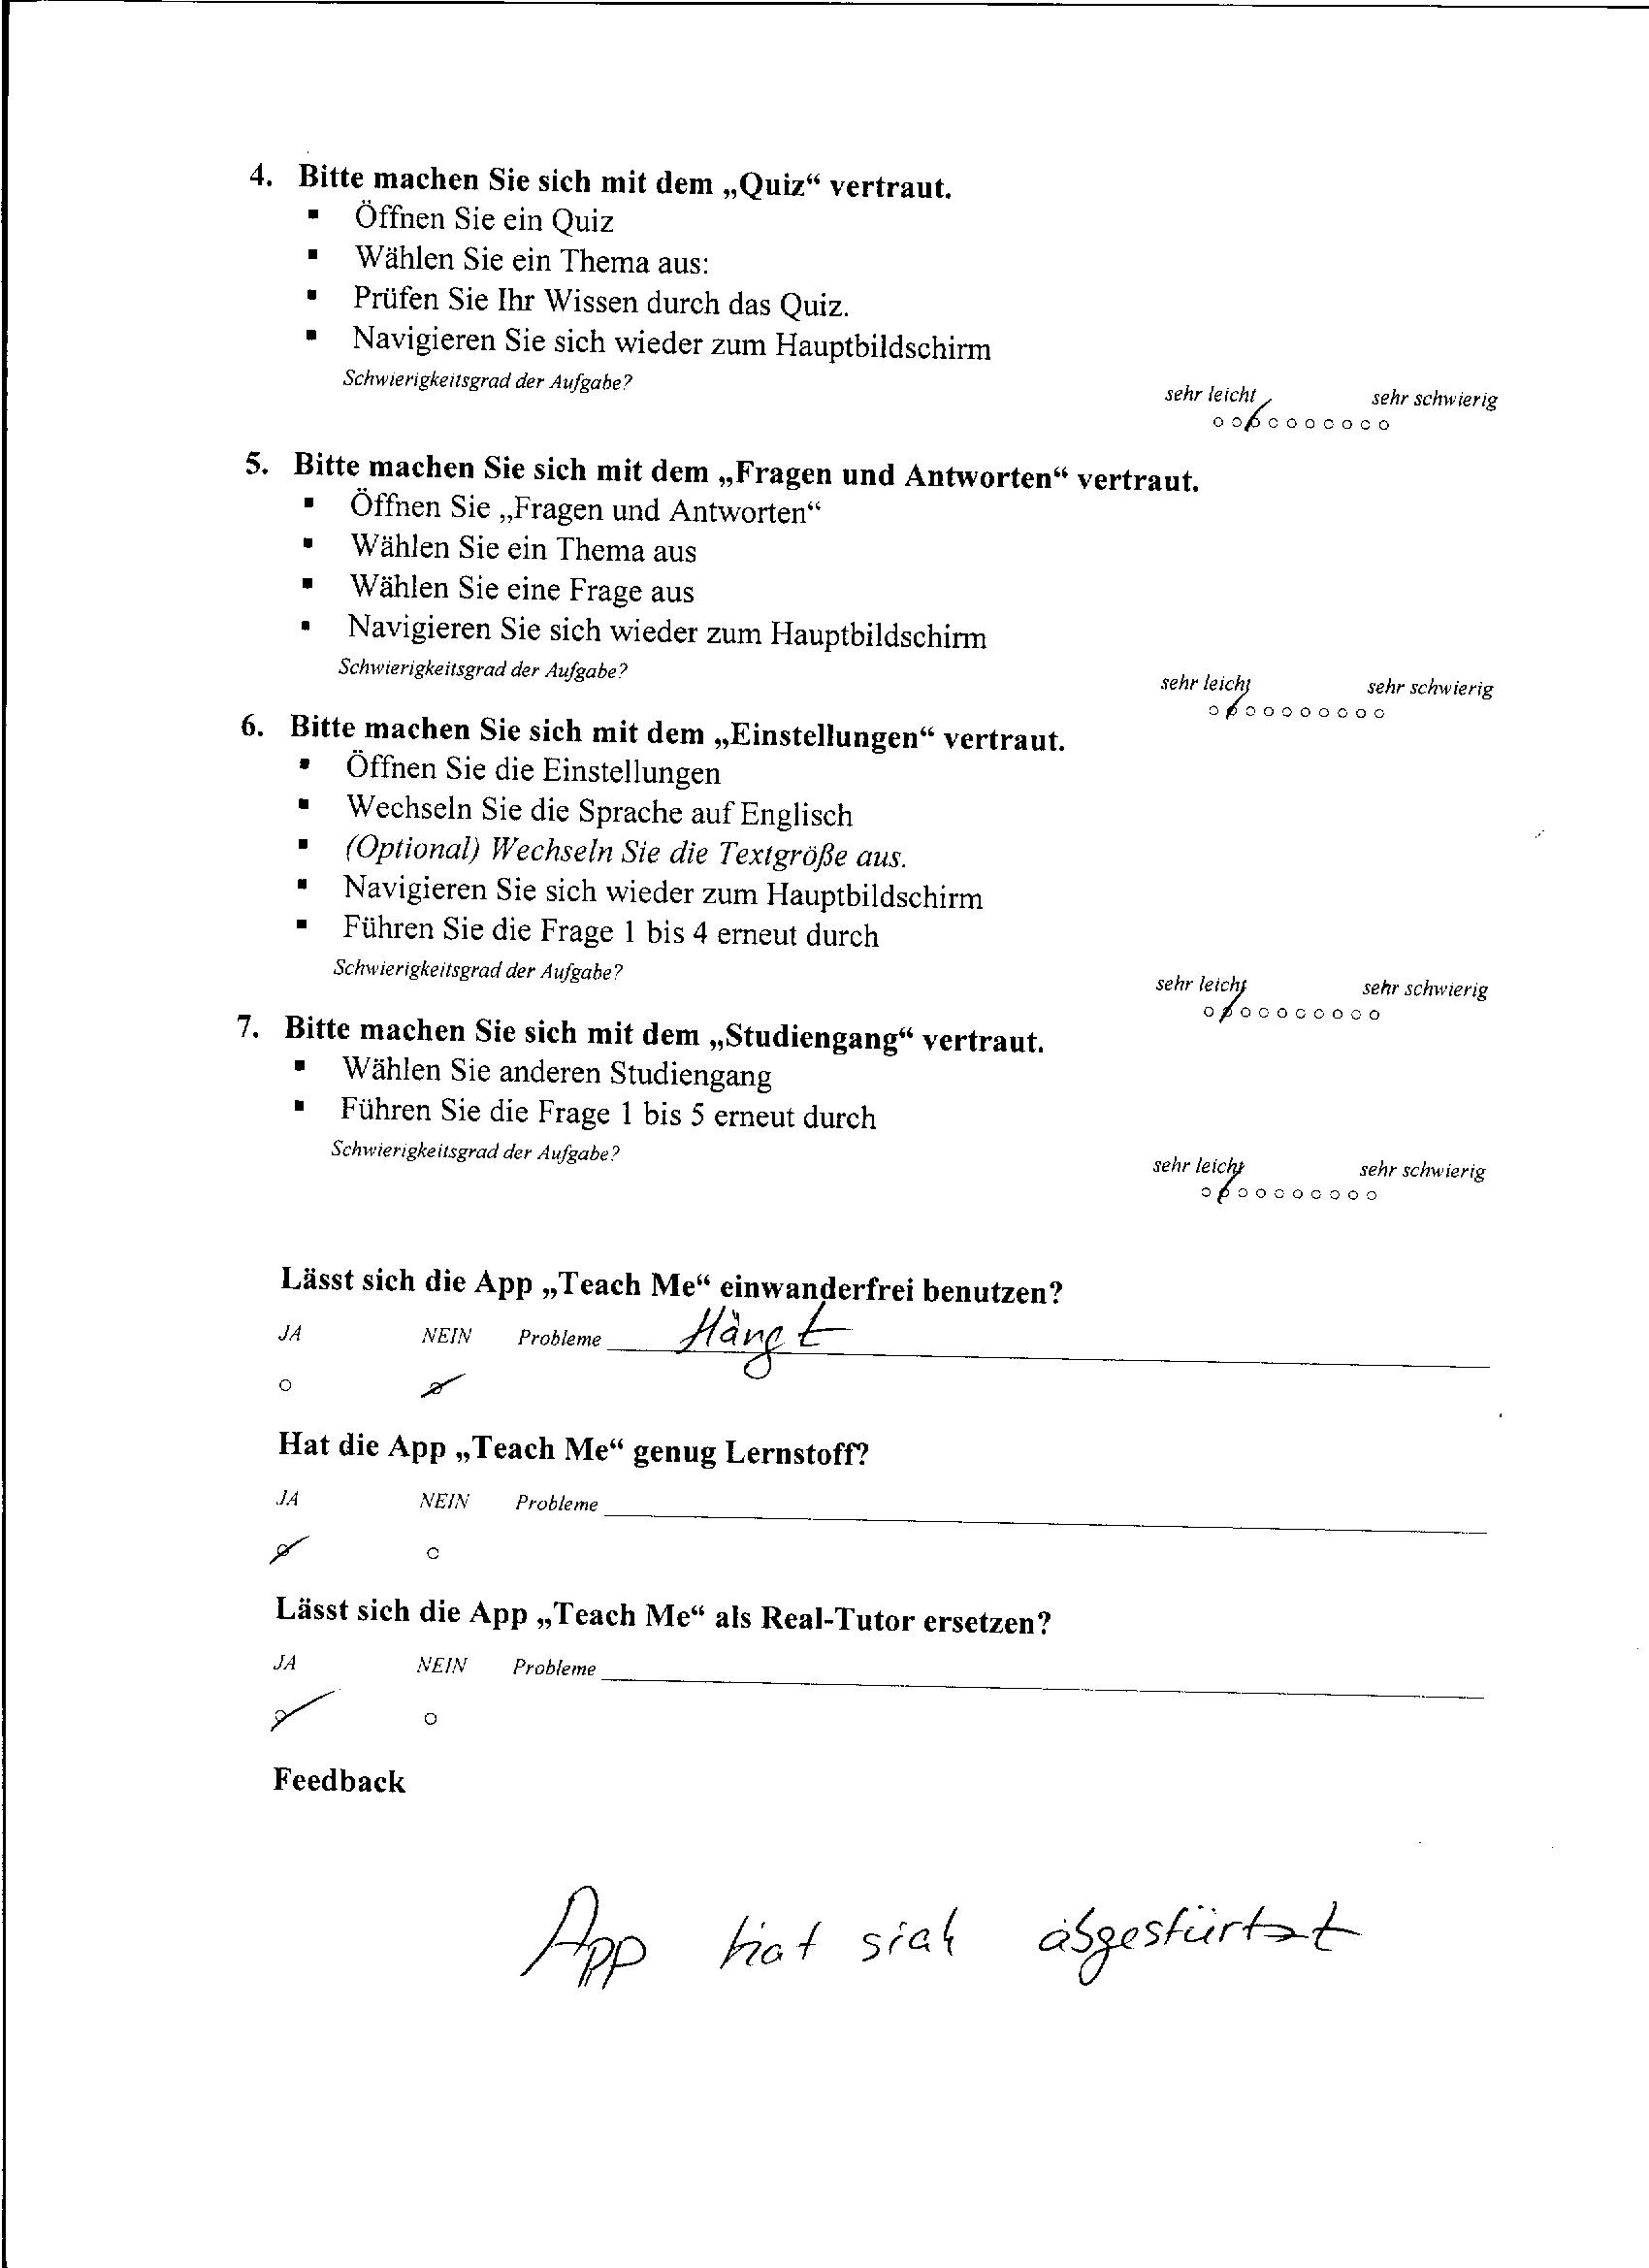 4. Bitte machen Sie sich mit dem „Quiz“ vertraut.
▪ Öffnen Sie ein Quiz
▪ Wählen Sie ein Thema aus:
▪ Prüfen Sie Ihr Wissen durch das Quiz.
▪ Navigieren Sie sich wieder zum Hauptbildschirm
Schwierigkeitsgrad der Aufgabe?
sehr leicht sehr schwierig
5. Bitte machen Sie sich mit dem „Fragen und Antworten“ vertraut.
▪ Öffnen Sie „Fragen und Antworten“
▪ Wählen Sie ein Thema aus
▪ Wählen Sie eine Frage aus
▪ Navigieren Sie sich wieder zum Hauptbildschirm
Schwierigkeitsgrad der Aufgabe?
sehr leicht sehr schwierig
6. Bitte machen Sie sich mit dem „Einstellungen“ vertraut.
▪ Öffnen Sie die Einstellungen
▪ Wechseln Sie die Sprache auf Englisch
▪ (Optional) Wechseln Sie die Textgröße aus.
▪ Navigieren Sie sich wieder zum Hauptbildschirm
▪ Führen Sie die Frage 1 bis 4 erneut durch
Schwierigkeitsgrad der Aufgabe?
sehr leicht sehr schwierig
7. Bitte machen Sie sich mit dem „Studiengang“ vertraut.
▪ Wählen Sie anderen Studiengang
▪ Führen Sie die Frage 1 bis 5 erneut durch
Schwierigkeitsgrad der Aufgabe?
sehr leicht sehr schwierig
Lässt sich die App „Teach Me“ einwanderfrei benutzen?
JA NEIN Probleme Hängt
Hat die App „Teach Me“ genug Lernstoff?
JA NEIN Probleme
Lässt sich die App „Teach Me“ als Real-Tutor ersetzen?
JA NEIN Probleme
Feedback
App hat sich abgestürtzt